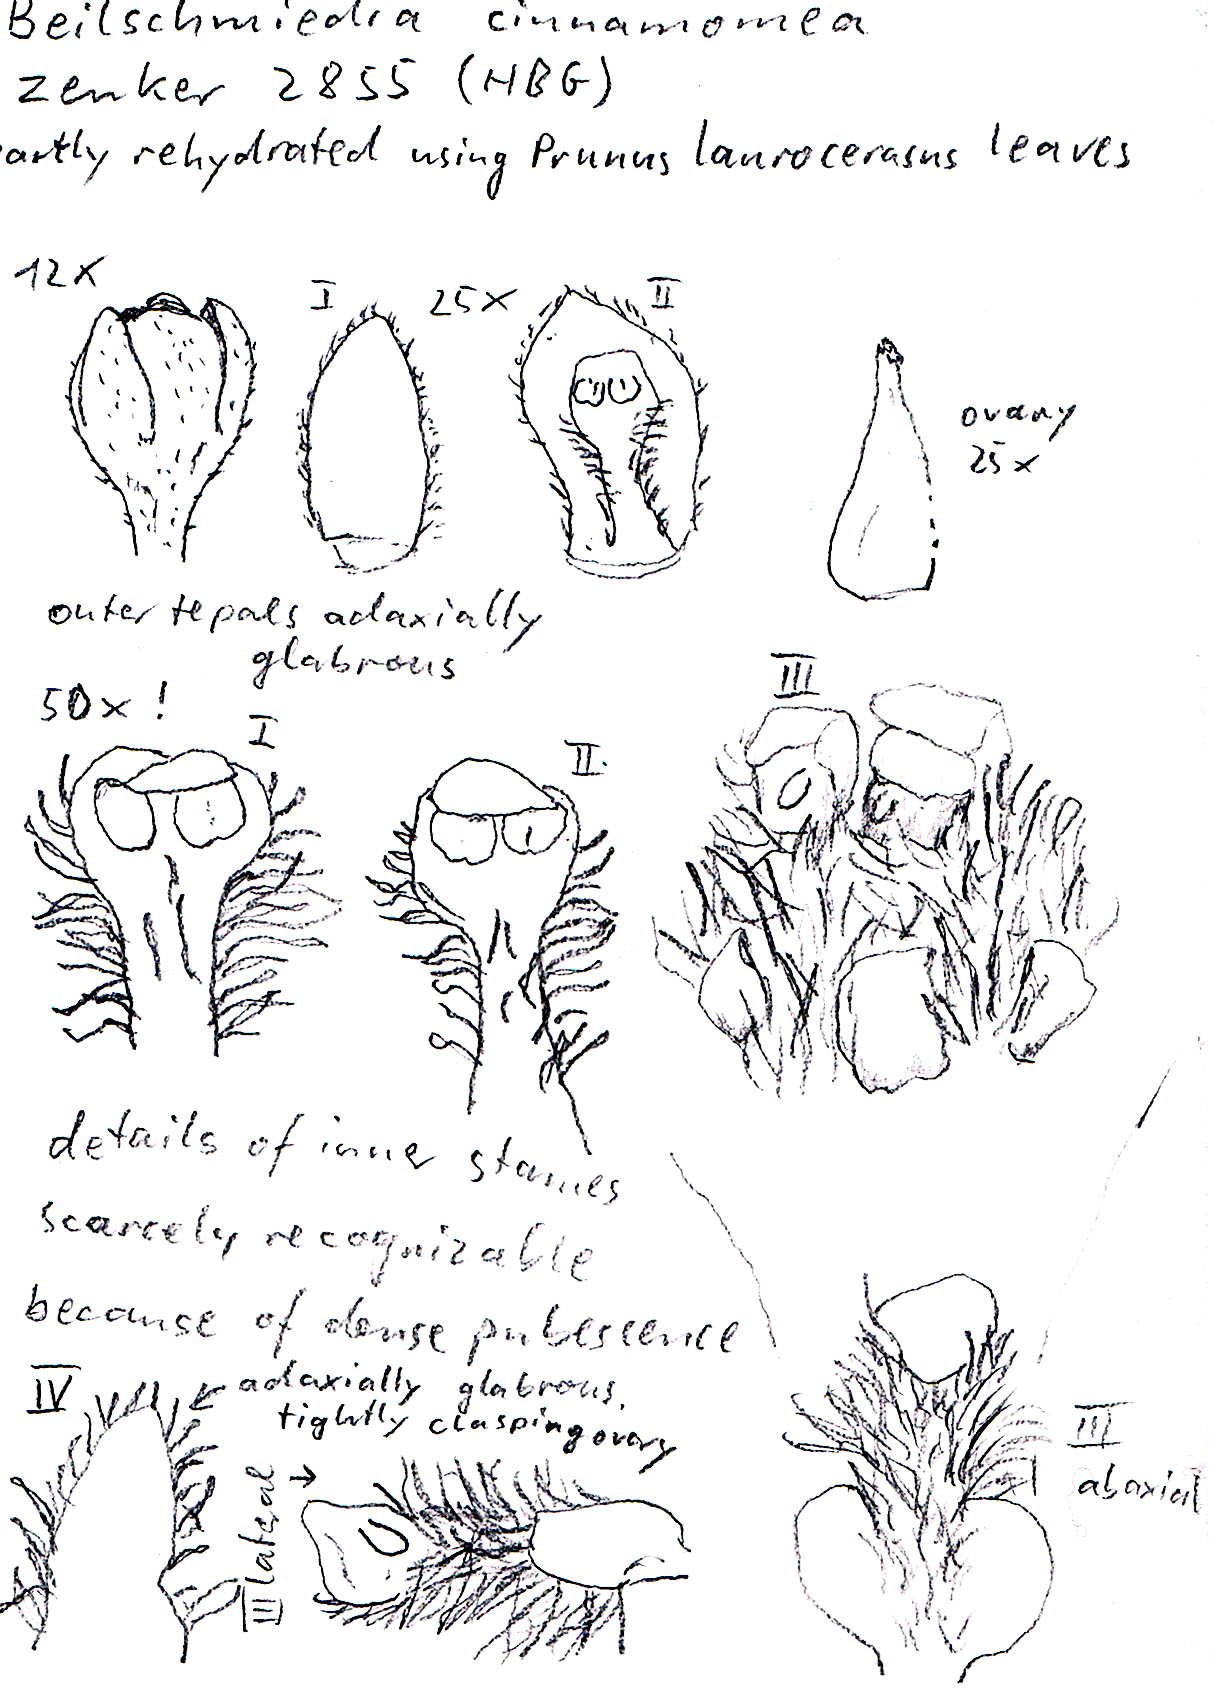 Beilschmiedia cinnamomea
Zenker 2855 (HBG)
partly rehydrated using Prunus laurocerasus leaves
12x
I
25x
II
ovary
25x
outer tepals adaxially
glabrous
50x!
I
II
III
details of inner stamens
scarcely recognizable
because of dense pubescence
IV
adaxially glabrous,
tightly clasping ovary
III lateral
III
abaxial